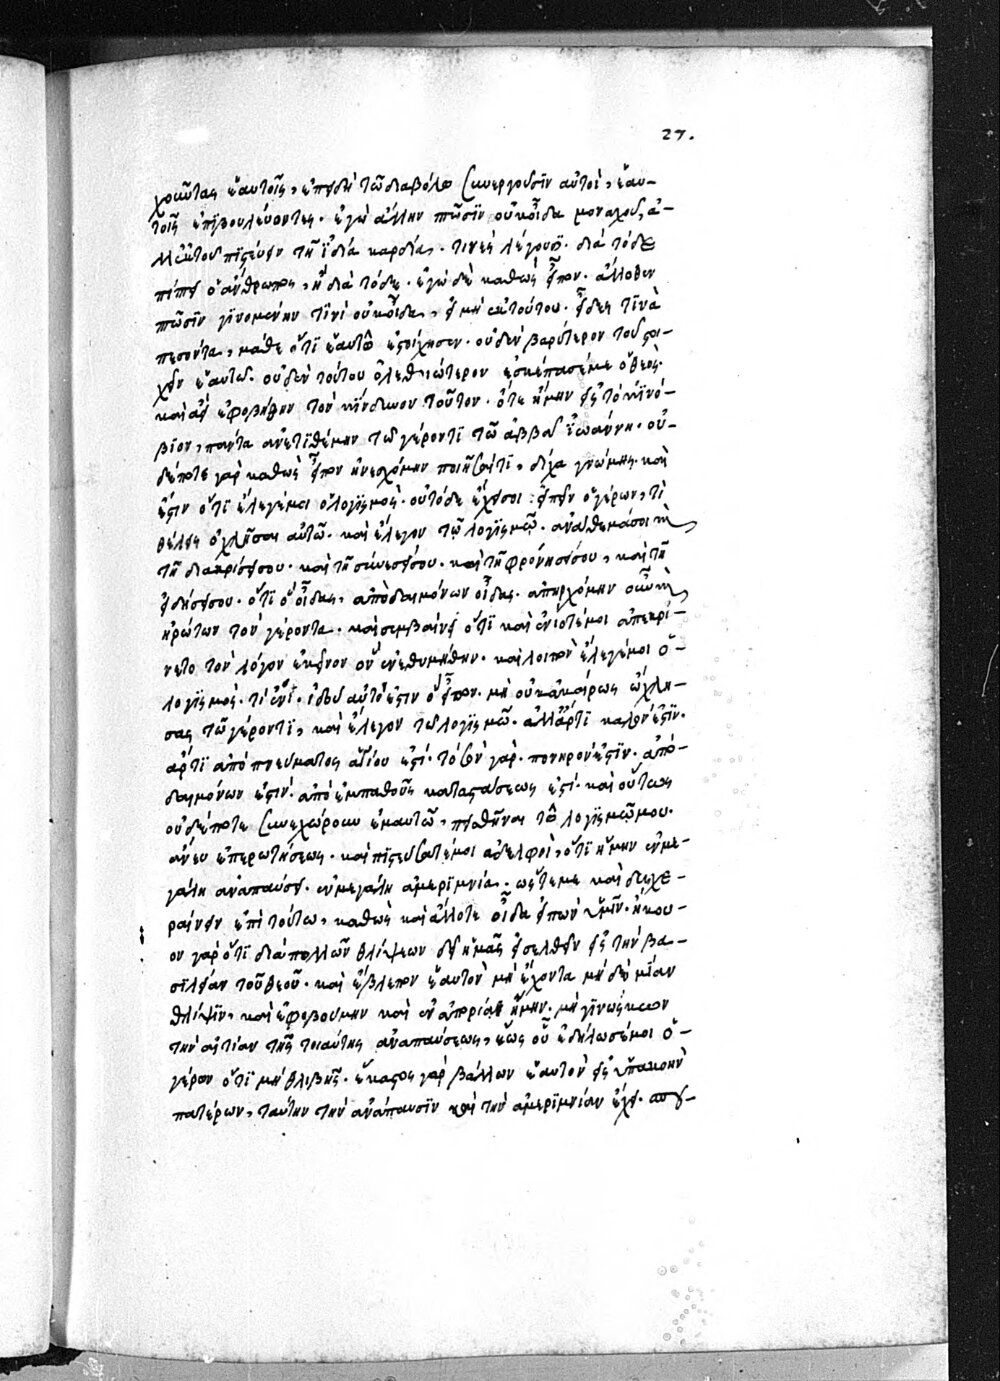 27.
χοιοῦτας ἑαυτοῖς, ἐπειδὴ τῶ διαβόλω συνεργοῦσιν αὐτοὶ, ἑαυ-
τοῖς ἐπιβουλεύοντες. ἐγὼ ἄλλην πτῶσιν οὐκ οἶδα μοναχοῦ, ἀ-
λλ' ἐκ τοῦ πιστεύειν τῆ ἰδία καρδία. τινὲς λέγουσι. διὰ τόδε
πίπτει ὁ ἄνθρωπος, ἢ διὰ τόδε. ἐγὼ δὲ καθὼς εἶπον. ἄλλοθεν
πτῶσιν γινομένην τινὶ οὐκ οἶδα, εἰ μὴ ἐκ τούτου. εἶδες τινὰ
πεσόντα, μάθε ὅτι ἑαυτῶ ἐστοίχησεν. οὐδὲν βαρύτερον τοῦ στοι-
χεῖν ἑαυτῶ. οὐδὲν τούτου ὀλεθριώτερον ἐσκέπασέ με ὁ θεὸς.
καὶ ἀεὶ ἐφοβήθην τὸν κίνδυνον τοῦτον. ὅτε ἤμην εἰς τὸ κοινό-
βιον, πάντα ἀνετιθέμην τῶ γέροντι τῶ ἀββᾶ ἰωάννη. οὐ-
δέποτε γὰρ καθὼς εἶπον ἠνεσχόμην ποιῆσαί τι, δίχα γνώμης. καὶ
ἔστιν ὅτι ἔλεγέ μοι ὁ λογισμὸς. οὐ τόδε ἔχει σοι εἰπεῖν ὁ γέρων, τί
θέλεις ὀχλῆσαι αὐτῶ. καὶ ἔλεγον τῶ λογισμῶ. ἀνάθεμά σοι κ
τῆ διακρίσει σου. καὶ τῆ συνέσει σου. καὶ τῆ φρονήσει σου, καὶ τῆ
εἰδήσει σου. ὅτι ὃ οἶδας, ἀπὸ δαιμόνων οἶδας. ἀπηρχόμην οὖν κ
ἠρώτων τὸν γέροντα. καὶ συμβαίνει ὅτι καὶ ἐνίοτέ μοι ἀπεκρί-
νετο τὸν λόγον ἐκεῖνον ὃν ἐνεθυμήθην. καὶ λοιπὸν ἔλεγέ μοι ὁ
λογισμὸς. τί ἔνι. ἰδοὺ αὐτό ἐστιν ὃ εἶπον. μὴ οὐκ ἀκαίρως ὤχλη-
σας τῶ γέροντι, καὶ ἔλεγον τῶ λογισμῶ. ἀλλ' ἄρτι καλόν ἐστιν.
ἄρτι ἀπὸ πνεύματος ἁγίου ἐστί. τὸ σὸν γὰρ. πονηρόν ἐστιν. ἀπὸ
δαιμόνων ἐστίν. ἀπὸ ἐμπαθοῦς καταστάσεως ἐστί. καὶ οὕτως
οὐδέποτε συνεχώρουν ἐμαυτῶ, πεισθῆναι τῶ λογισμῶ μου.
ἄνευ ἐπερωτήσεως. καὶ πιστεύσατέ μοι ἀδελφοὶ, ὅτι ἤμην ἐν με-
γάλη ἀναπαύσει. ἐν μεγάλη ἀμεριμνία. ὥστε με καὶ δυσχε-
ραίνειν ἐπὶ τούτω, καθὼς καὶ ἄλλοτε οἶδα εἰπὼν ὑμῖν. ἤκου-
ον γὰρ ὅτι διὰ πολλῶν θλίψεων δεῖ ἡμᾶς εἰσελθεῖν εἰς τὴν βα-
σιλείαν τοῦ θεοῦ. καὶ ἔβλεπον ἑαυτὸν μὴ ἔχοντα μηδεμίαν
θλίψιν, καὶ ἐφοβούμην καὶ ἐν ἀπορία ἤμην. μὴ γινώσκων
τὴν αἰτίαν τῆς τοιαύτης ἀναπαύσεως, ἕως οὗ ἐδήλωσέ μοι ὁ
γέρων ὅτι μὴ θλιβῆς. ἕκαστος γὰρ βάλλων ἑαυτὸν εἰς ὑπακοὴν
πατέρων, ταύτην τὴν ἀνάπαυσιν καὶ τὴν ἀμεριμνίαν ἔχει.